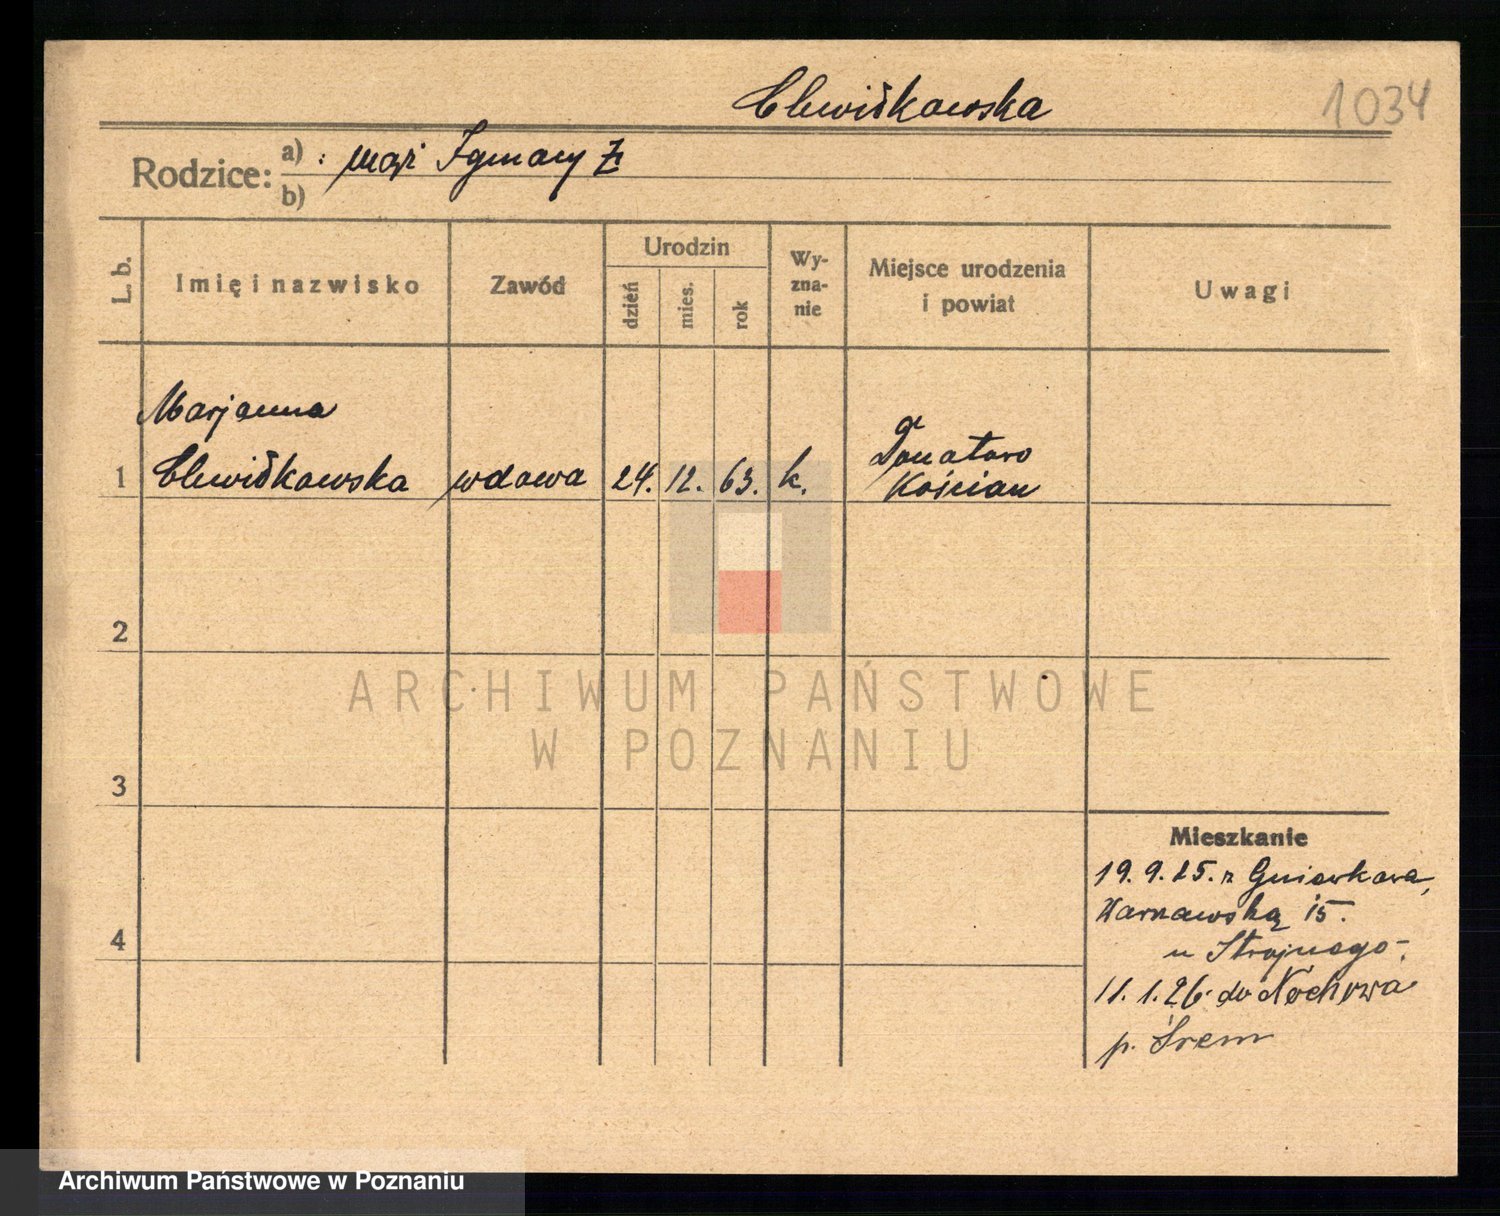 Clewiśkowska
1034
Rodzice: a) : mąż Ignacy Ż
b)
L. b.
Imię i nazwisko
Zawód
Urodzin
dzień
mies.
rok
Wy-
zna-
nie
Miejsce urodzenia
i powiat
Uwagi
Marjanna
1 Clewiśkowska wdowa 24. 12. 63. k.
Donatowo
Kościan
2
3
4
Mieszkanie
19. 9. 25. z Gniewkowa,
Warszawska 15.
u Strojnego.
11. 1. 26. do Nochowa
p. Śrem
ARCHIWUM PAŃSTWOWE
W POZNANIU
Archiwum Państwowe w Poznaniu